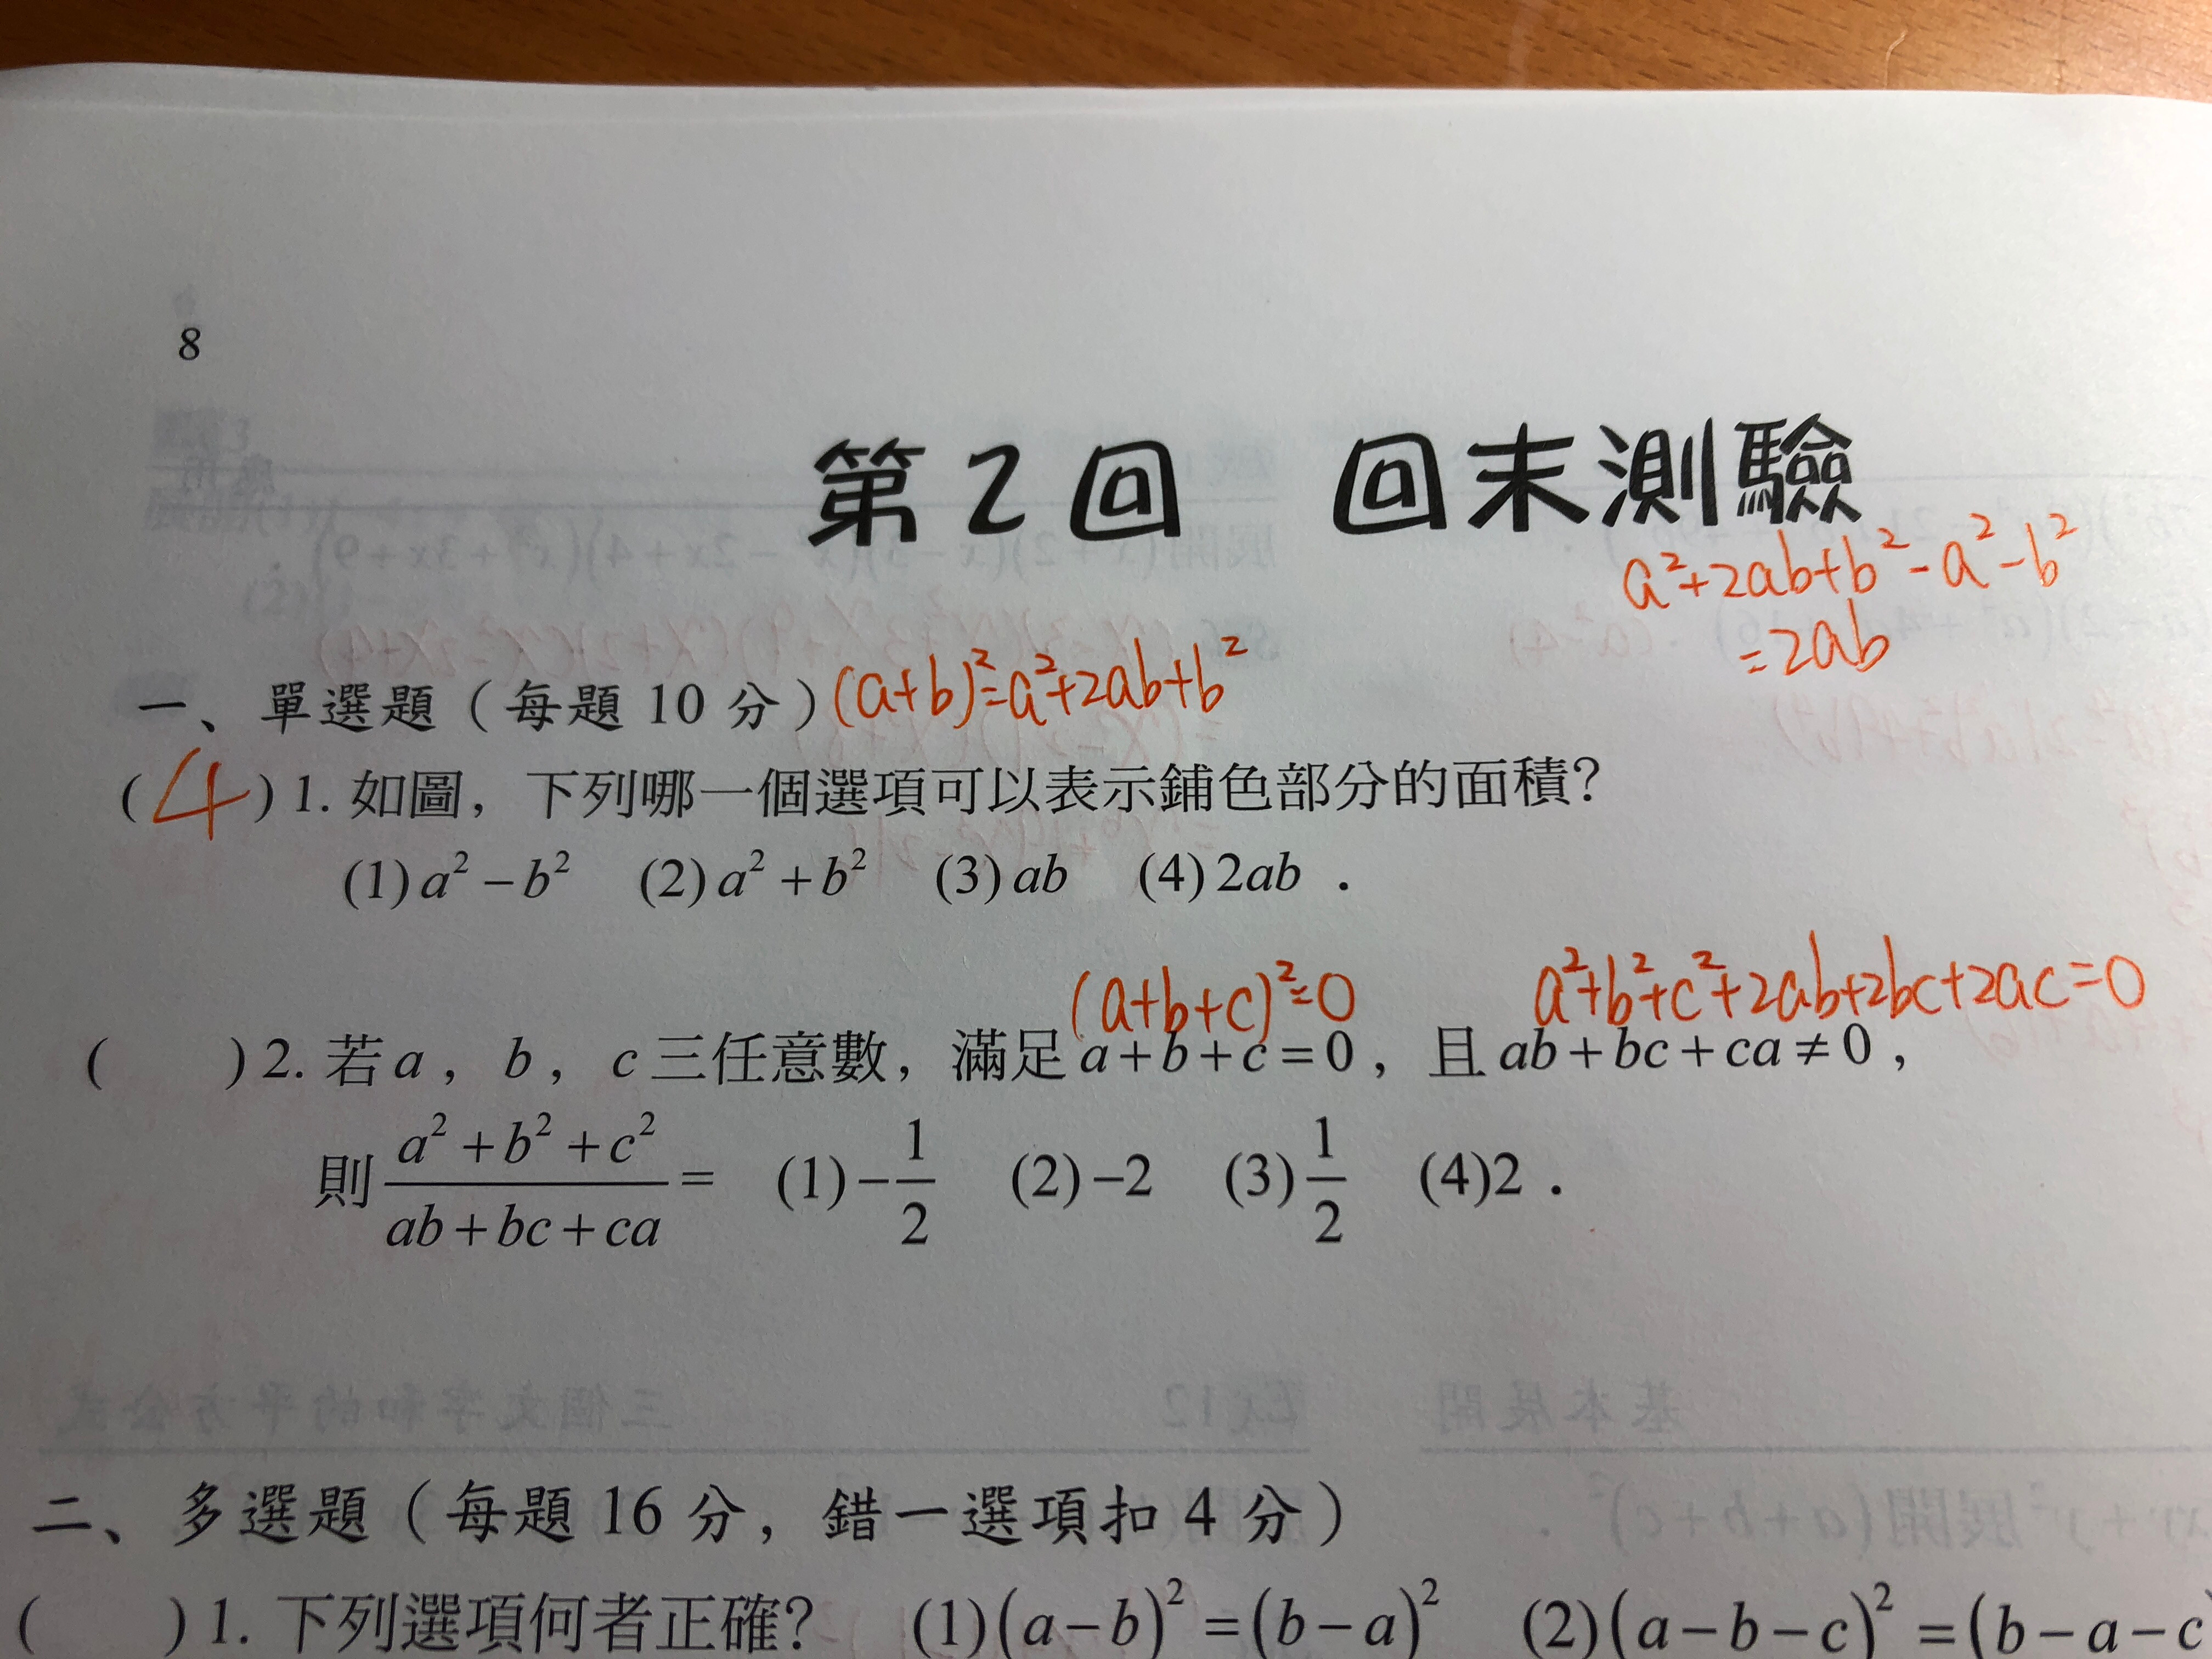 8
第2回 回末測驗
a²+2ab+b²-a²-b²
=2ab
一、單選題（每題 10 分） (a+b)²=a²+2ab+b²
( 4 ) 1. 如圖，下列哪一個選項可以表示鋪色部分的面積？
(1) a² − b² (2) a² + b² (3) ab (4) 2ab .
(a+b+c)²=0 a²+b²+c²+2ab+2bc+2ac=0
( ) 2. 若 a，b，c 三任意數，滿足 a + b + c = 0，且 ab + bc + ca ≠ 0，
則 (a² + b² + c²)/(ab + bc + ca) = (1) −1/2 (2) −2 (3) 1/2 (4) 2 .
二、多選題（每題 16 分，錯一選項扣 4 分）
( ) 1. 下列選項何者正確？ (1) (a − b)² = (b − a)² (2) (a − b − c)² = (b − a − c